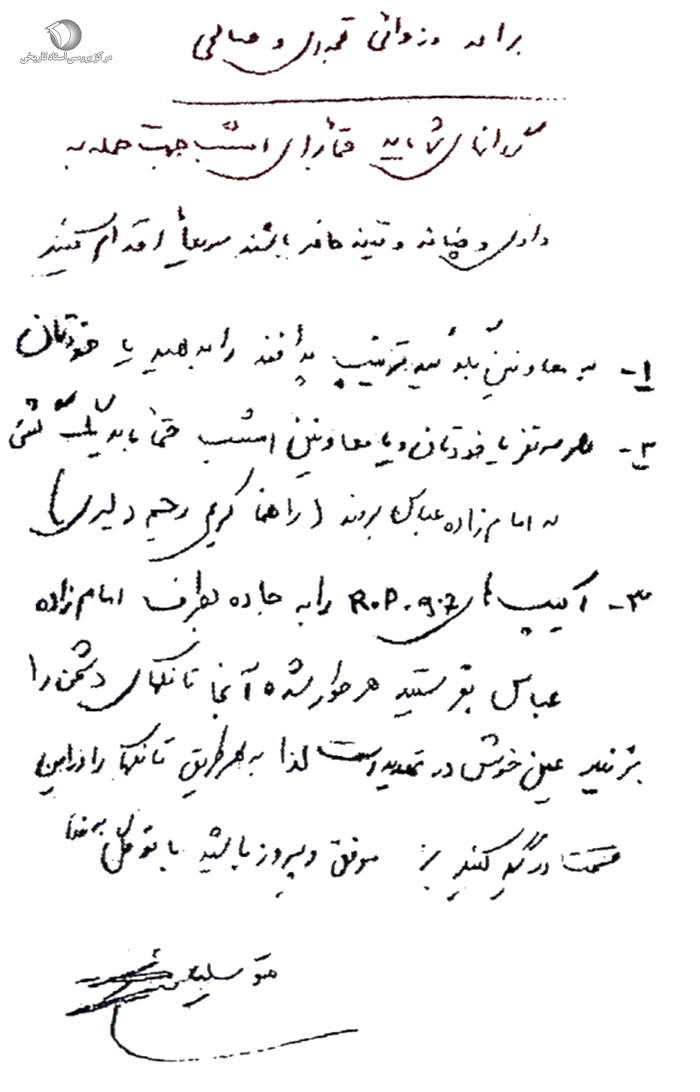 مرکز بررسی اسناد تاریخی
برادر وزوائی قجه‌ای و صالحی
گردانهای شما باید حتماً برای امشب جهت حمله به
وادی و تپه حاضر باشند سریعاً اقدام کنید
۱- به معاونین بگوئید ترتیب پدافند را بدهید یا خودتان
۲- یا خودتان و یا معاونین امشب حتماً باید یک گشتی
به امامزاده عباس بروند (راهنما کریمی رحیم دلبری)
۳- اکیپ های R.P.g.7 را به جاده بطرف امامزاده
عباس بفرستید هر طور شده آنجا تانکهای دشمن را
بزنید عین خوش در تهدید است لذا به هر طریق تانکها را در این
قسمت درگیر کنید موفق و پیروز باشید با توکل به خدا
متوسلیان